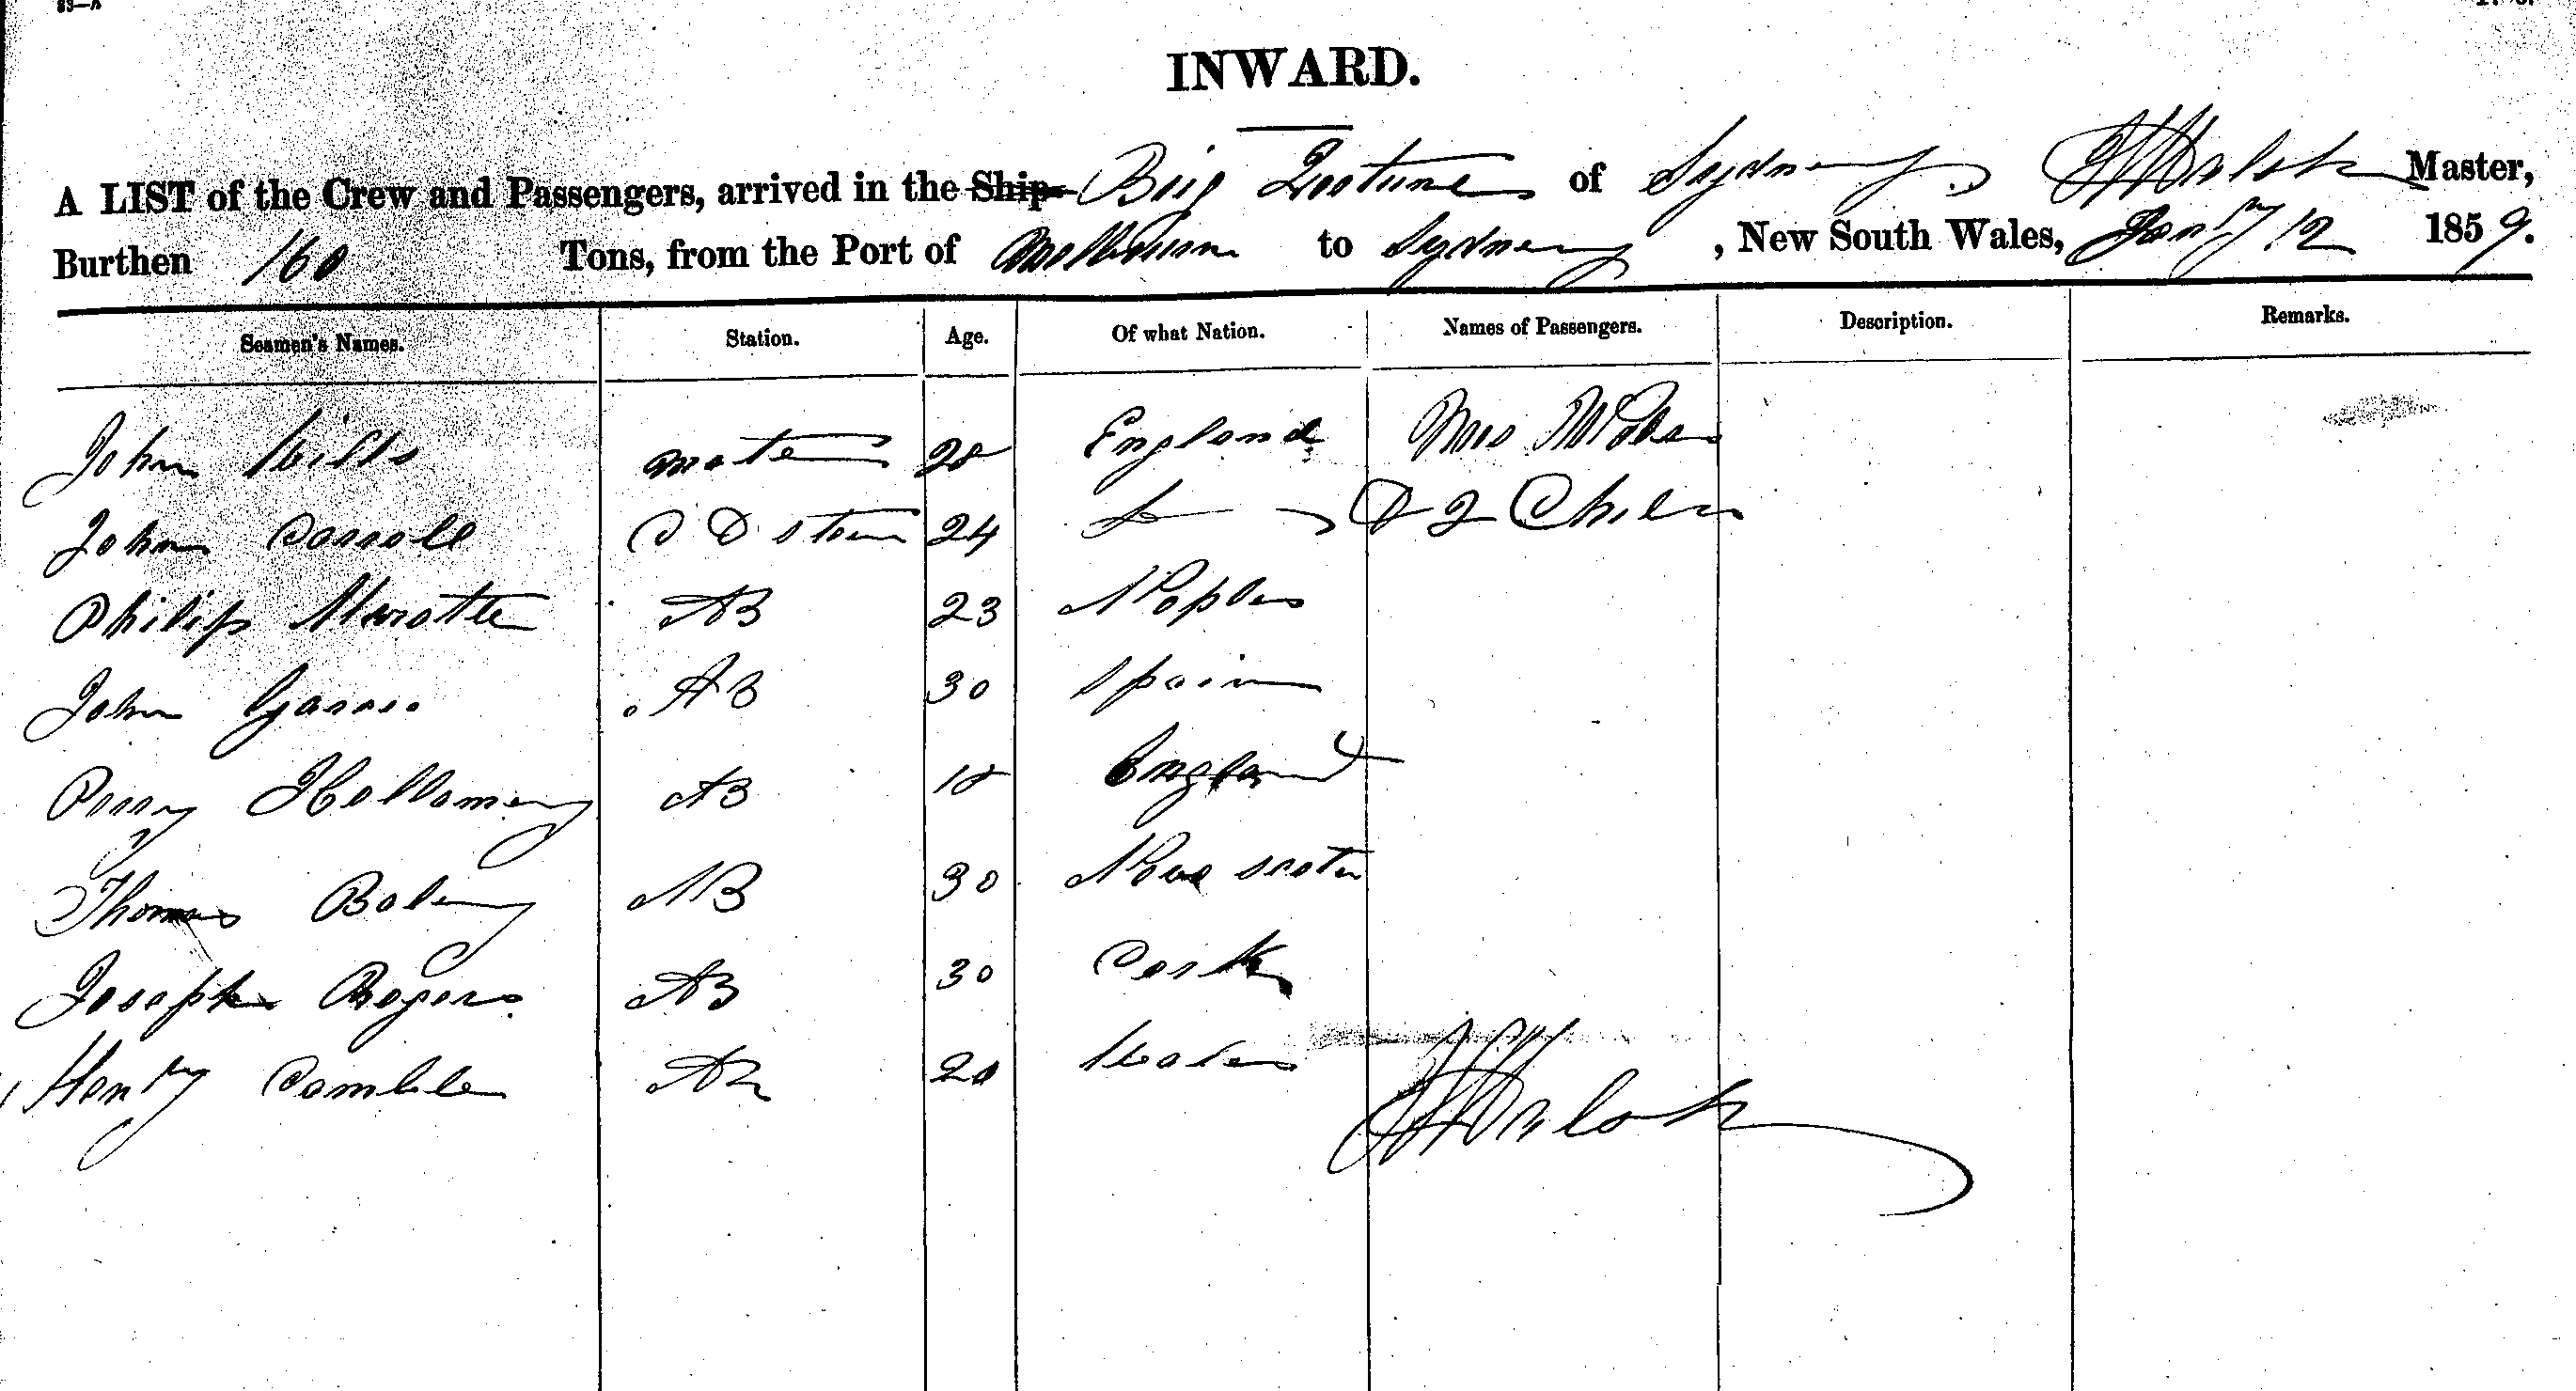 INWARD.
A LIST of the Crew and Passengers, arrived in the Ship Brig Fortune of Sydney, Master,
Burthen 160 Tons, from the Port of Melbourne to Sydney, New South Wales, Jany 12 1859.
Seamen's Names. Station. Age. Of what Nation. Names of Passengers. Description. Remarks.
John Mate 28 England Mrs
John Carroll 24 & 2 Children
Philip AB 23 Naples
John AB 30 Spain
AB 18 England
Thomas AB 30 Nova Scotia
Joseph Rogers AB 30 Cork
Henry 20 Wales